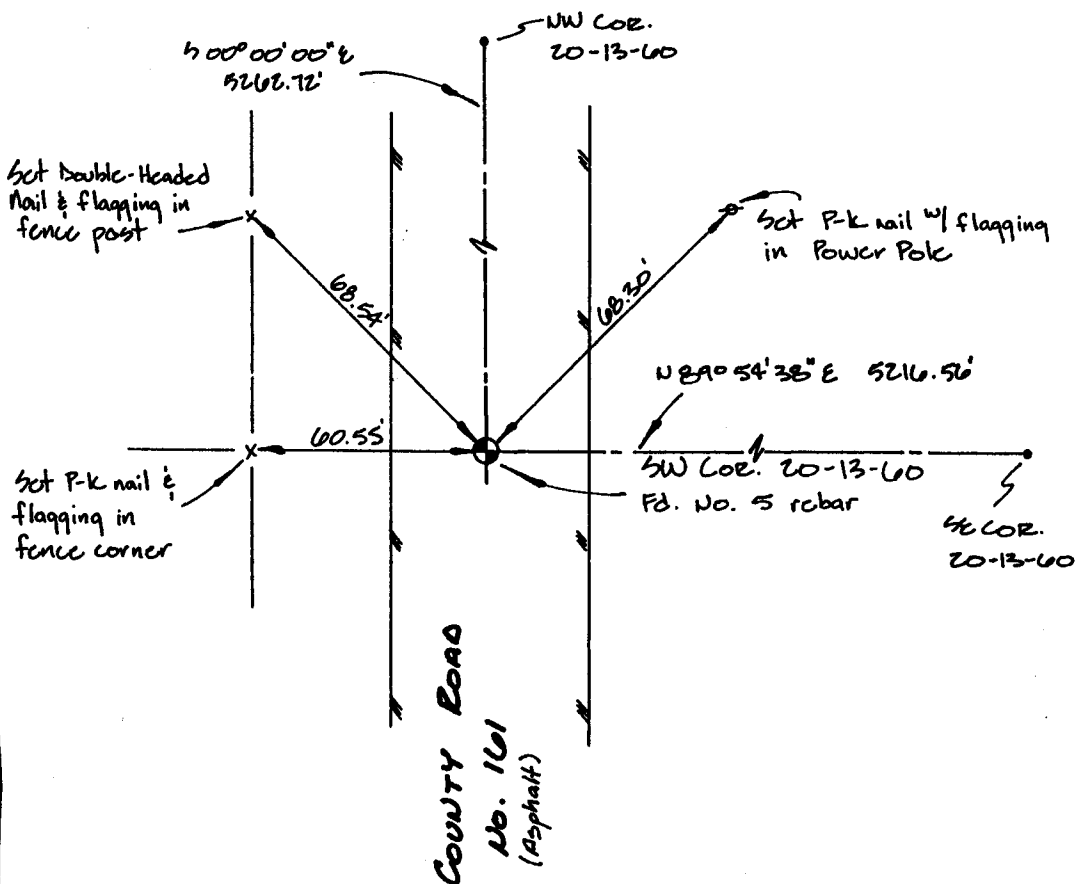 NW COR.
20-13-60
S 00°00'00" E
5262.72'
Set Double-Headed
Nail & flagging in
fence post
Set P-K nail w/ flagging
in Power Pole
68.54'
68.30'
N 89°54'38" E 5216.56'
60.55'
SW COR. 20-13-60
Fd. No. 5 rebar
Set P-K nail &
flagging in
fence corner
SE COR.
20-13-60
COUNTY ROAD
No. 161
(Asphalt)